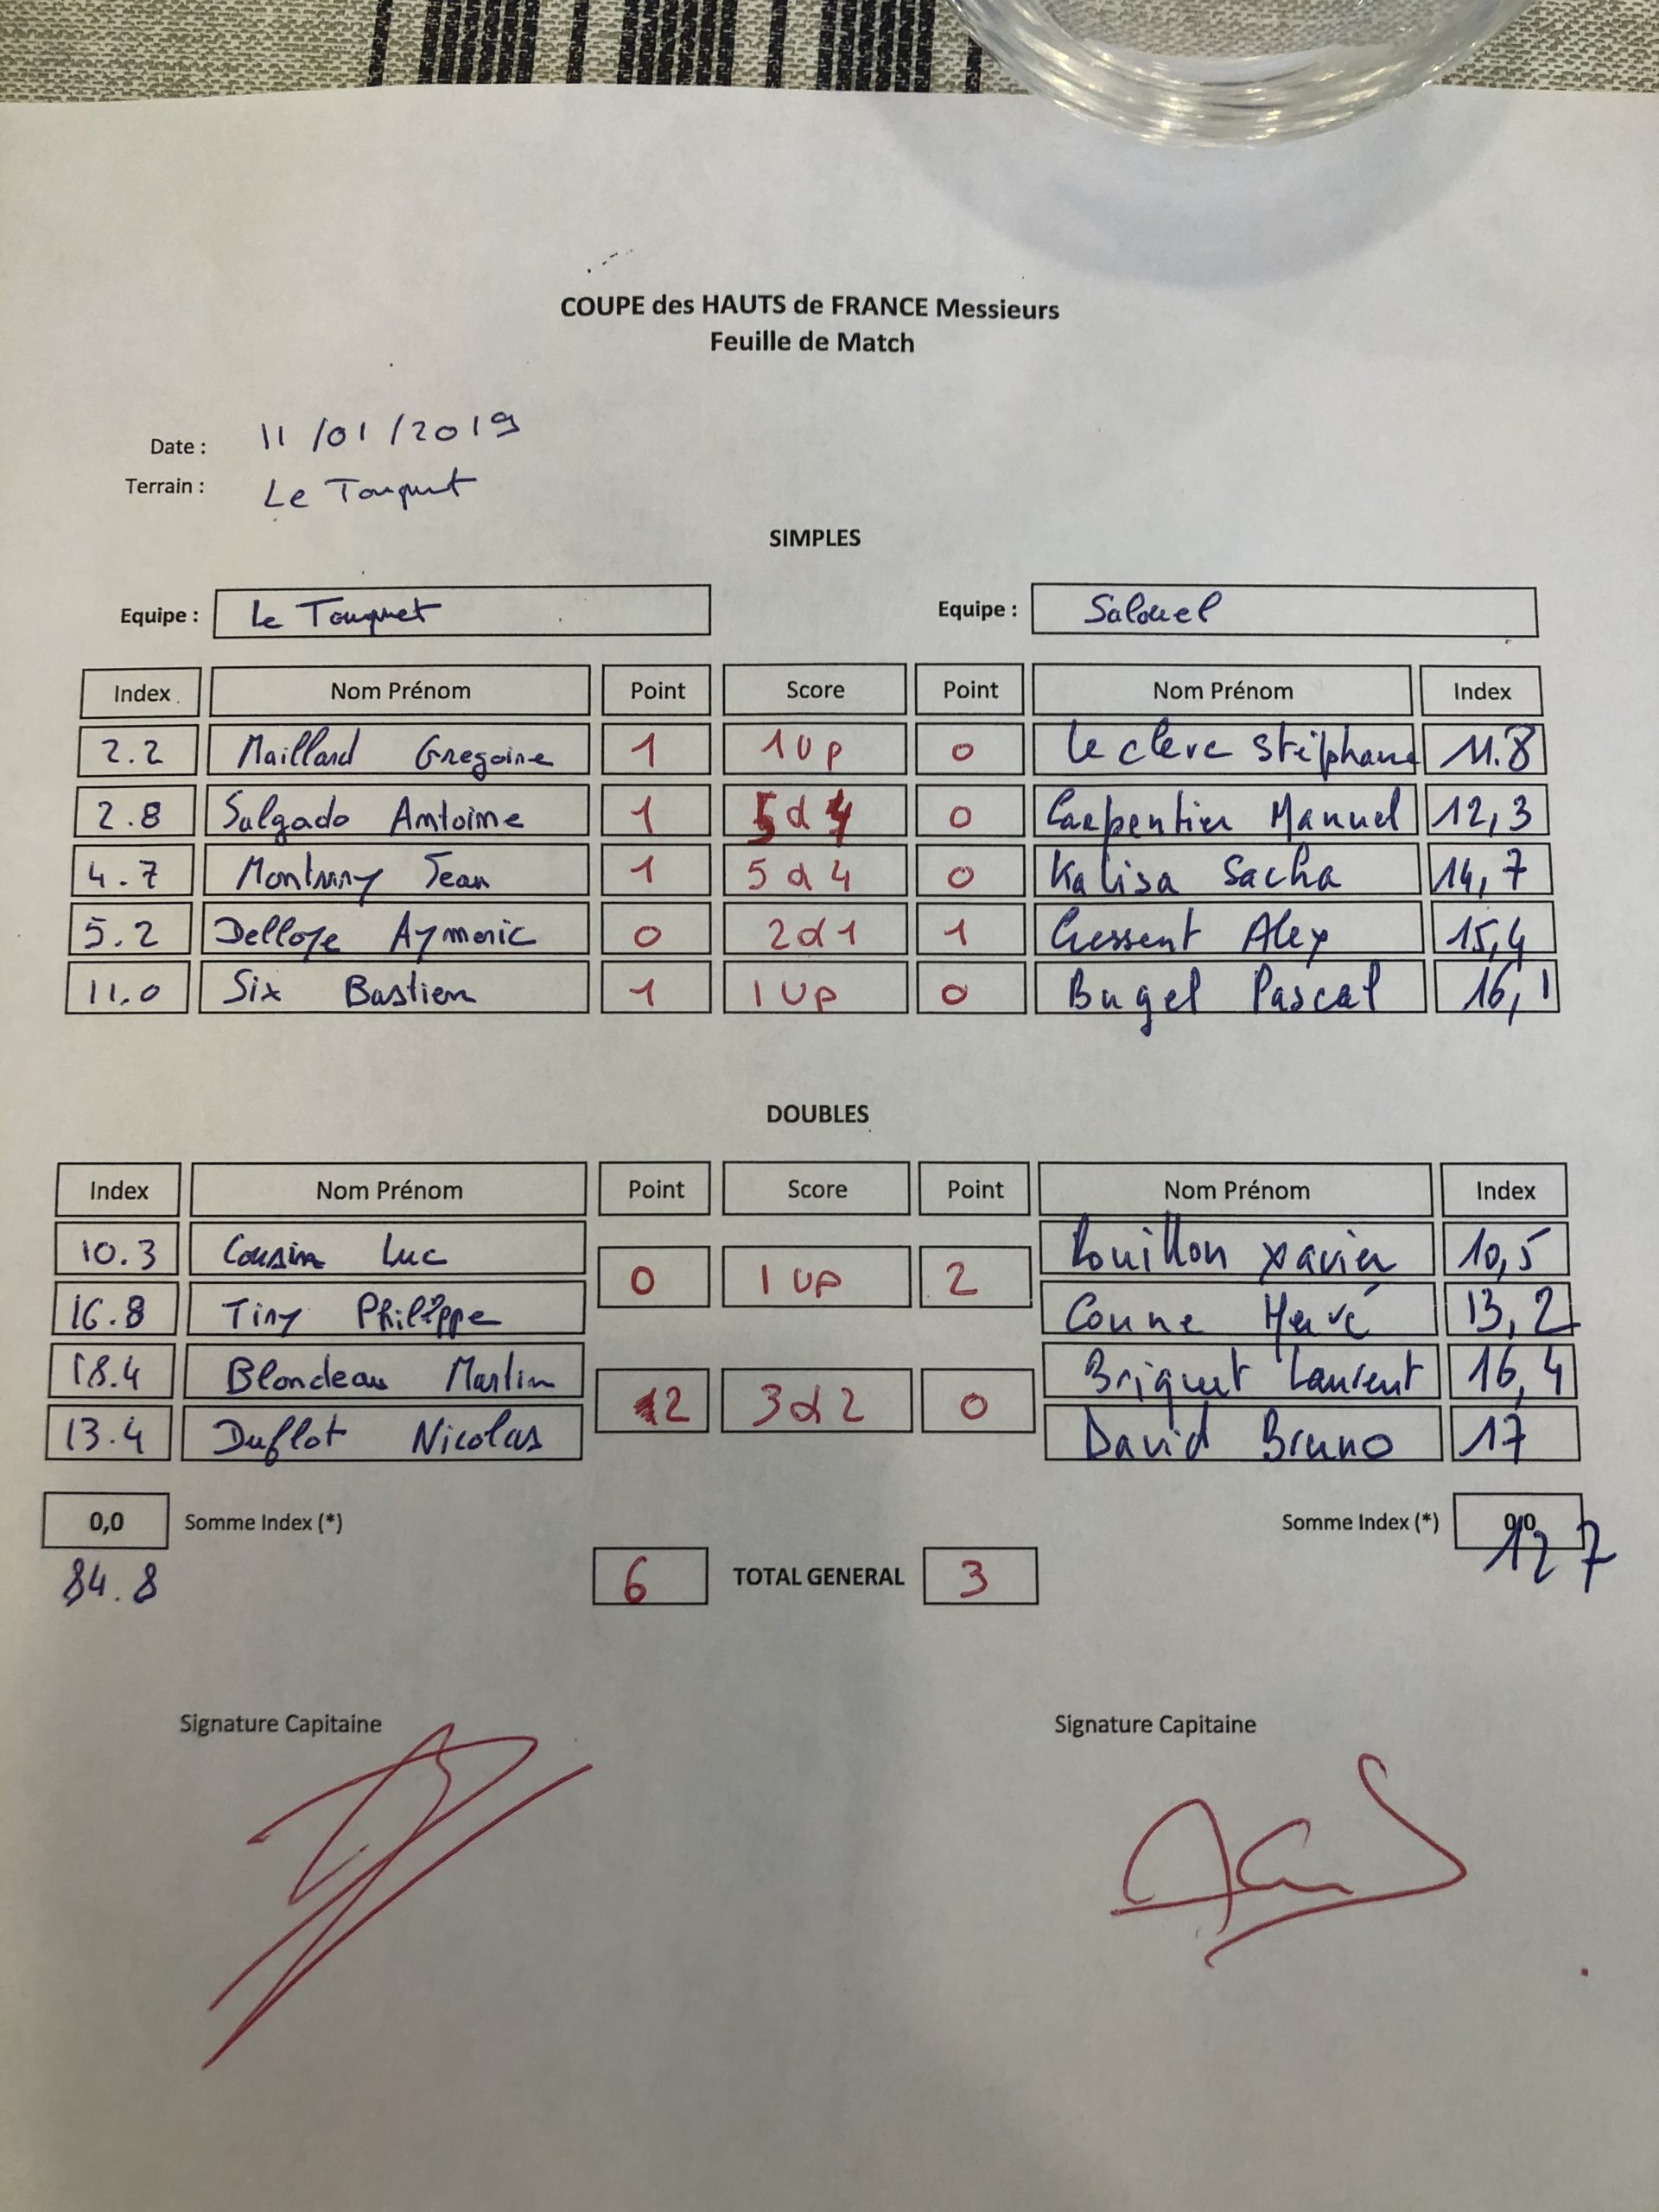 COUPE des HAUTS de FRANCE Messieurs
Feuille de Match
Date : 11/01/2019
Terrain : Le Touquet
SIMPLES
Equipe : Le Touquet Equipe : Salouel
Index Nom Prénom Point Score Point Nom Prénom Index
2.2 Maillard Gregoire 1 1 Up 0 Le clerc Stéphane 11.8
2.8 Salgado Antoine 1 5 d 4 0 Carpentier Manuel 12,3
4.7 Jean 1 5 d 4 0 Kalisa Sacha 14,7
5.2 Delloye Aymeric 0 2 d 1 1 Cressent Alex 15,4
11.0 Six Bastien 1 1 Up 0 Bugel Pascal 16,1
DOUBLES
Index Nom Prénom Point Score Point Nom Prénom Index
10.3 Cousin Luc Rouillon Xavier 10,5
0 1 UP 2
16.8 Tiny Philippe Conne Hervé 13,2
18.4 Blondeau Martin Briquet Laurent 16,4
2 3 d 2 0
13.4 Duflot Nicolas David Bruno 17
0,0 Somme Index (*) Somme Index (*) 0,0
84.8 6 TOTAL GENERAL 3 127
Signature Capitaine Signature Capitaine